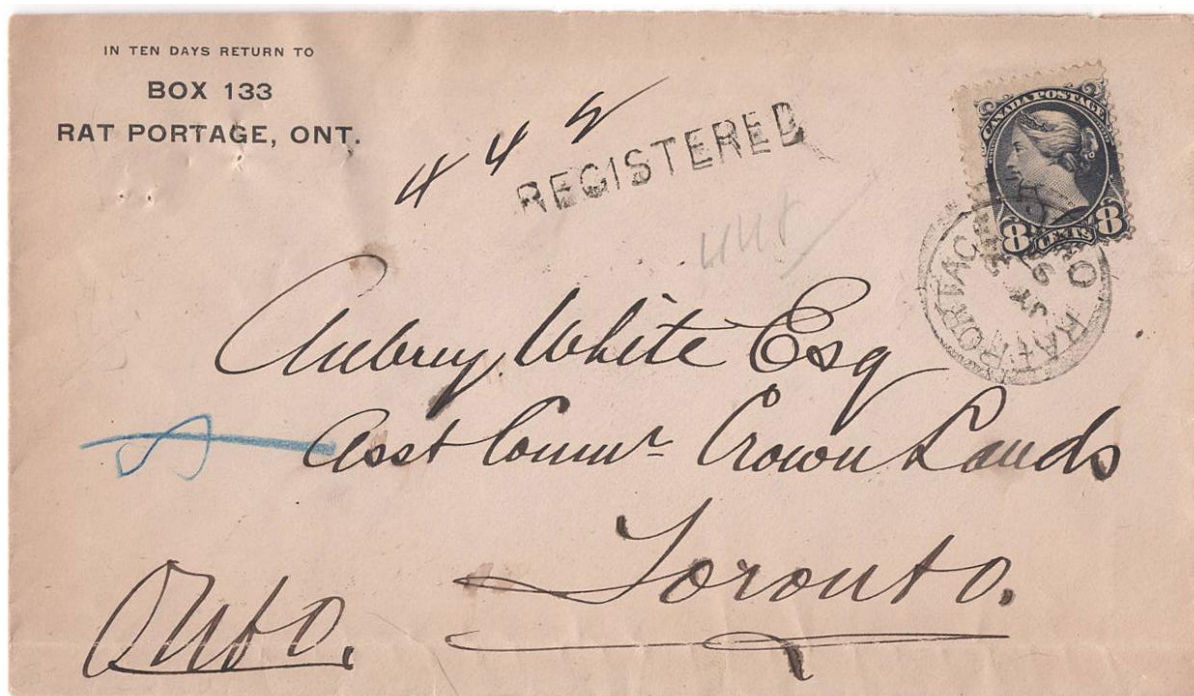 IN TEN DAYS RETURN TO
BOX 133
RAT PORTAGE, ONT.
REGISTERED
CANADA POSTAGE
8 CENTS 8
RAT PORTAGE
Aubrey White Esq
Asst Commr Crown Lands
Toronto.
Onto.